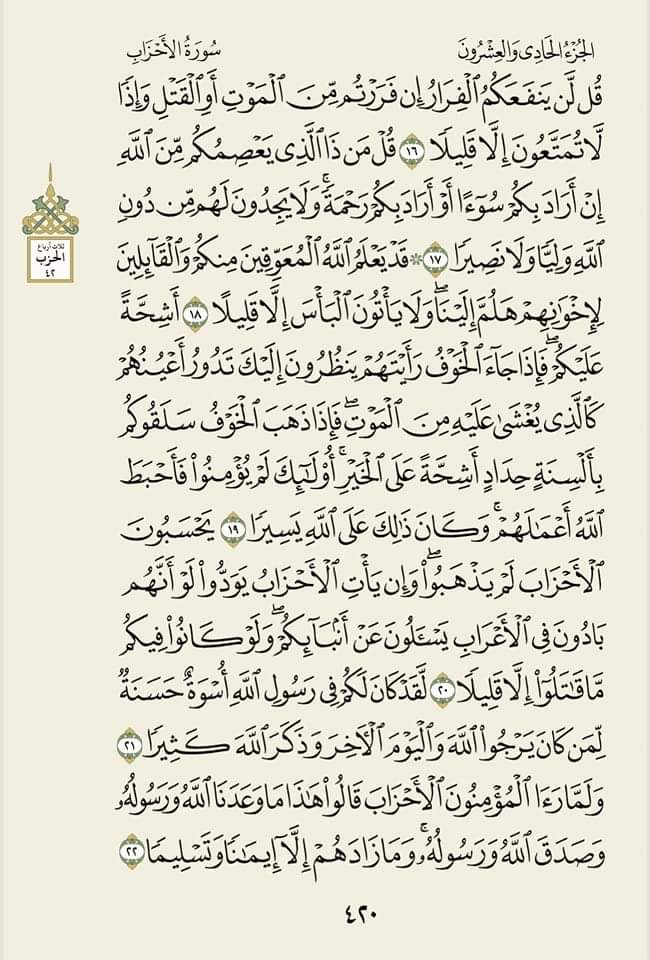 الجُزْءُ الحَادِي وَالعِشْرُونَ
سُورَةُ الأَحْزَابِ
قُل لَّن يَنفَعَكُمُ ٱلْفِرَارُ إِن فَرَرْتُم مِّنَ ٱلْمَوْتِ أَوِ ٱلْقَتْلِ وَإِذًا
لَّا تُمَتَّعُونَ إِلَّا قَلِيلًا ١٦ قُلْ مَن ذَا ٱلَّذِى يَعْصِمُكُم مِّنَ ٱللَّهِ
إِنْ أَرَادَ بِكُمْ سُوٓءًا أَوْ أَرَادَ بِكُمْ رَحْمَةً ۚ وَلَا يَجِدُونَ لَهُم مِّن دُونِ
ٱللَّهِ وَلِيًّا وَلَا نَصِيرًا ١٧ ۞ قَدْ يَعْلَمُ ٱللَّهُ ٱلْمُعَوِّقِينَ مِنكُمْ وَٱلْقَآئِلِينَ
ثلاث أرباع
الحزب
٤٢
لِإِخْوَٰنِهِمْ هَلُمَّ إِلَيْنَا ۖ وَلَا يَأْتُونَ ٱلْبَأْسَ إِلَّا قَلِيلًا ١٨ أَشِحَّةً
عَلَيْكُمْ ۖ فَإِذَا جَآءَ ٱلْخَوْفُ رَأَيْتَهُمْ يَنظُرُونَ إِلَيْكَ تَدُورُ أَعْيُنُهُمْ
كَٱلَّذِى يُغْشَىٰ عَلَيْهِ مِنَ ٱلْمَوْتِ ۖ فَإِذَا ذَهَبَ ٱلْخَوْفُ سَلَقُوكُم
بِأَلْسِنَةٍ حِدَادٍ أَشِحَّةً عَلَى ٱلْخَيْرِ ۚ أُو۟لَٰٓئِكَ لَمْ يُؤْمِنُوا۟ فَأَحْبَطَ
ٱللَّهُ أَعْمَٰلَهُمْ ۚ وَكَانَ ذَٰلِكَ عَلَى ٱللَّهِ يَسِيرًا ١٩ يَحْسَبُونَ
ٱلْأَحْزَابَ لَمْ يَذْهَبُوا۟ ۖ وَإِن يَأْتِ ٱلْأَحْزَابُ يَوَدُّوا۟ لَوْ أَنَّهُم
بَادُونَ فِى ٱلْأَعْرَابِ يَسْـَٔلُونَ عَنْ أَنۢبَآئِكُمْ ۖ وَلَوْ كَانُوا۟ فِيكُم
مَّا قَٰتَلُوٓا۟ إِلَّا قَلِيلًا ٢٠ لَّقَدْ كَانَ لَكُمْ فِى رَسُولِ ٱللَّهِ أُسْوَةٌ حَسَنَةٌ
لِّمَن كَانَ يَرْجُوا۟ ٱللَّهَ وَٱلْيَوْمَ ٱلْـَٔاخِرَ وَذَكَرَ ٱللَّهَ كَثِيرًا ٢١
وَلَمَّا رَءَا ٱلْمُؤْمِنُونَ ٱلْأَحْزَابَ قَالُوا۟ هَٰذَا مَا وَعَدَنَا ٱللَّهُ وَرَسُولُهُۥ
وَصَدَقَ ٱللَّهُ وَرَسُولُهُۥ ۚ وَمَا زَادَهُمْ إِلَّآ إِيمَٰنًا وَتَسْلِيمًا ٢٢
٤٢٠